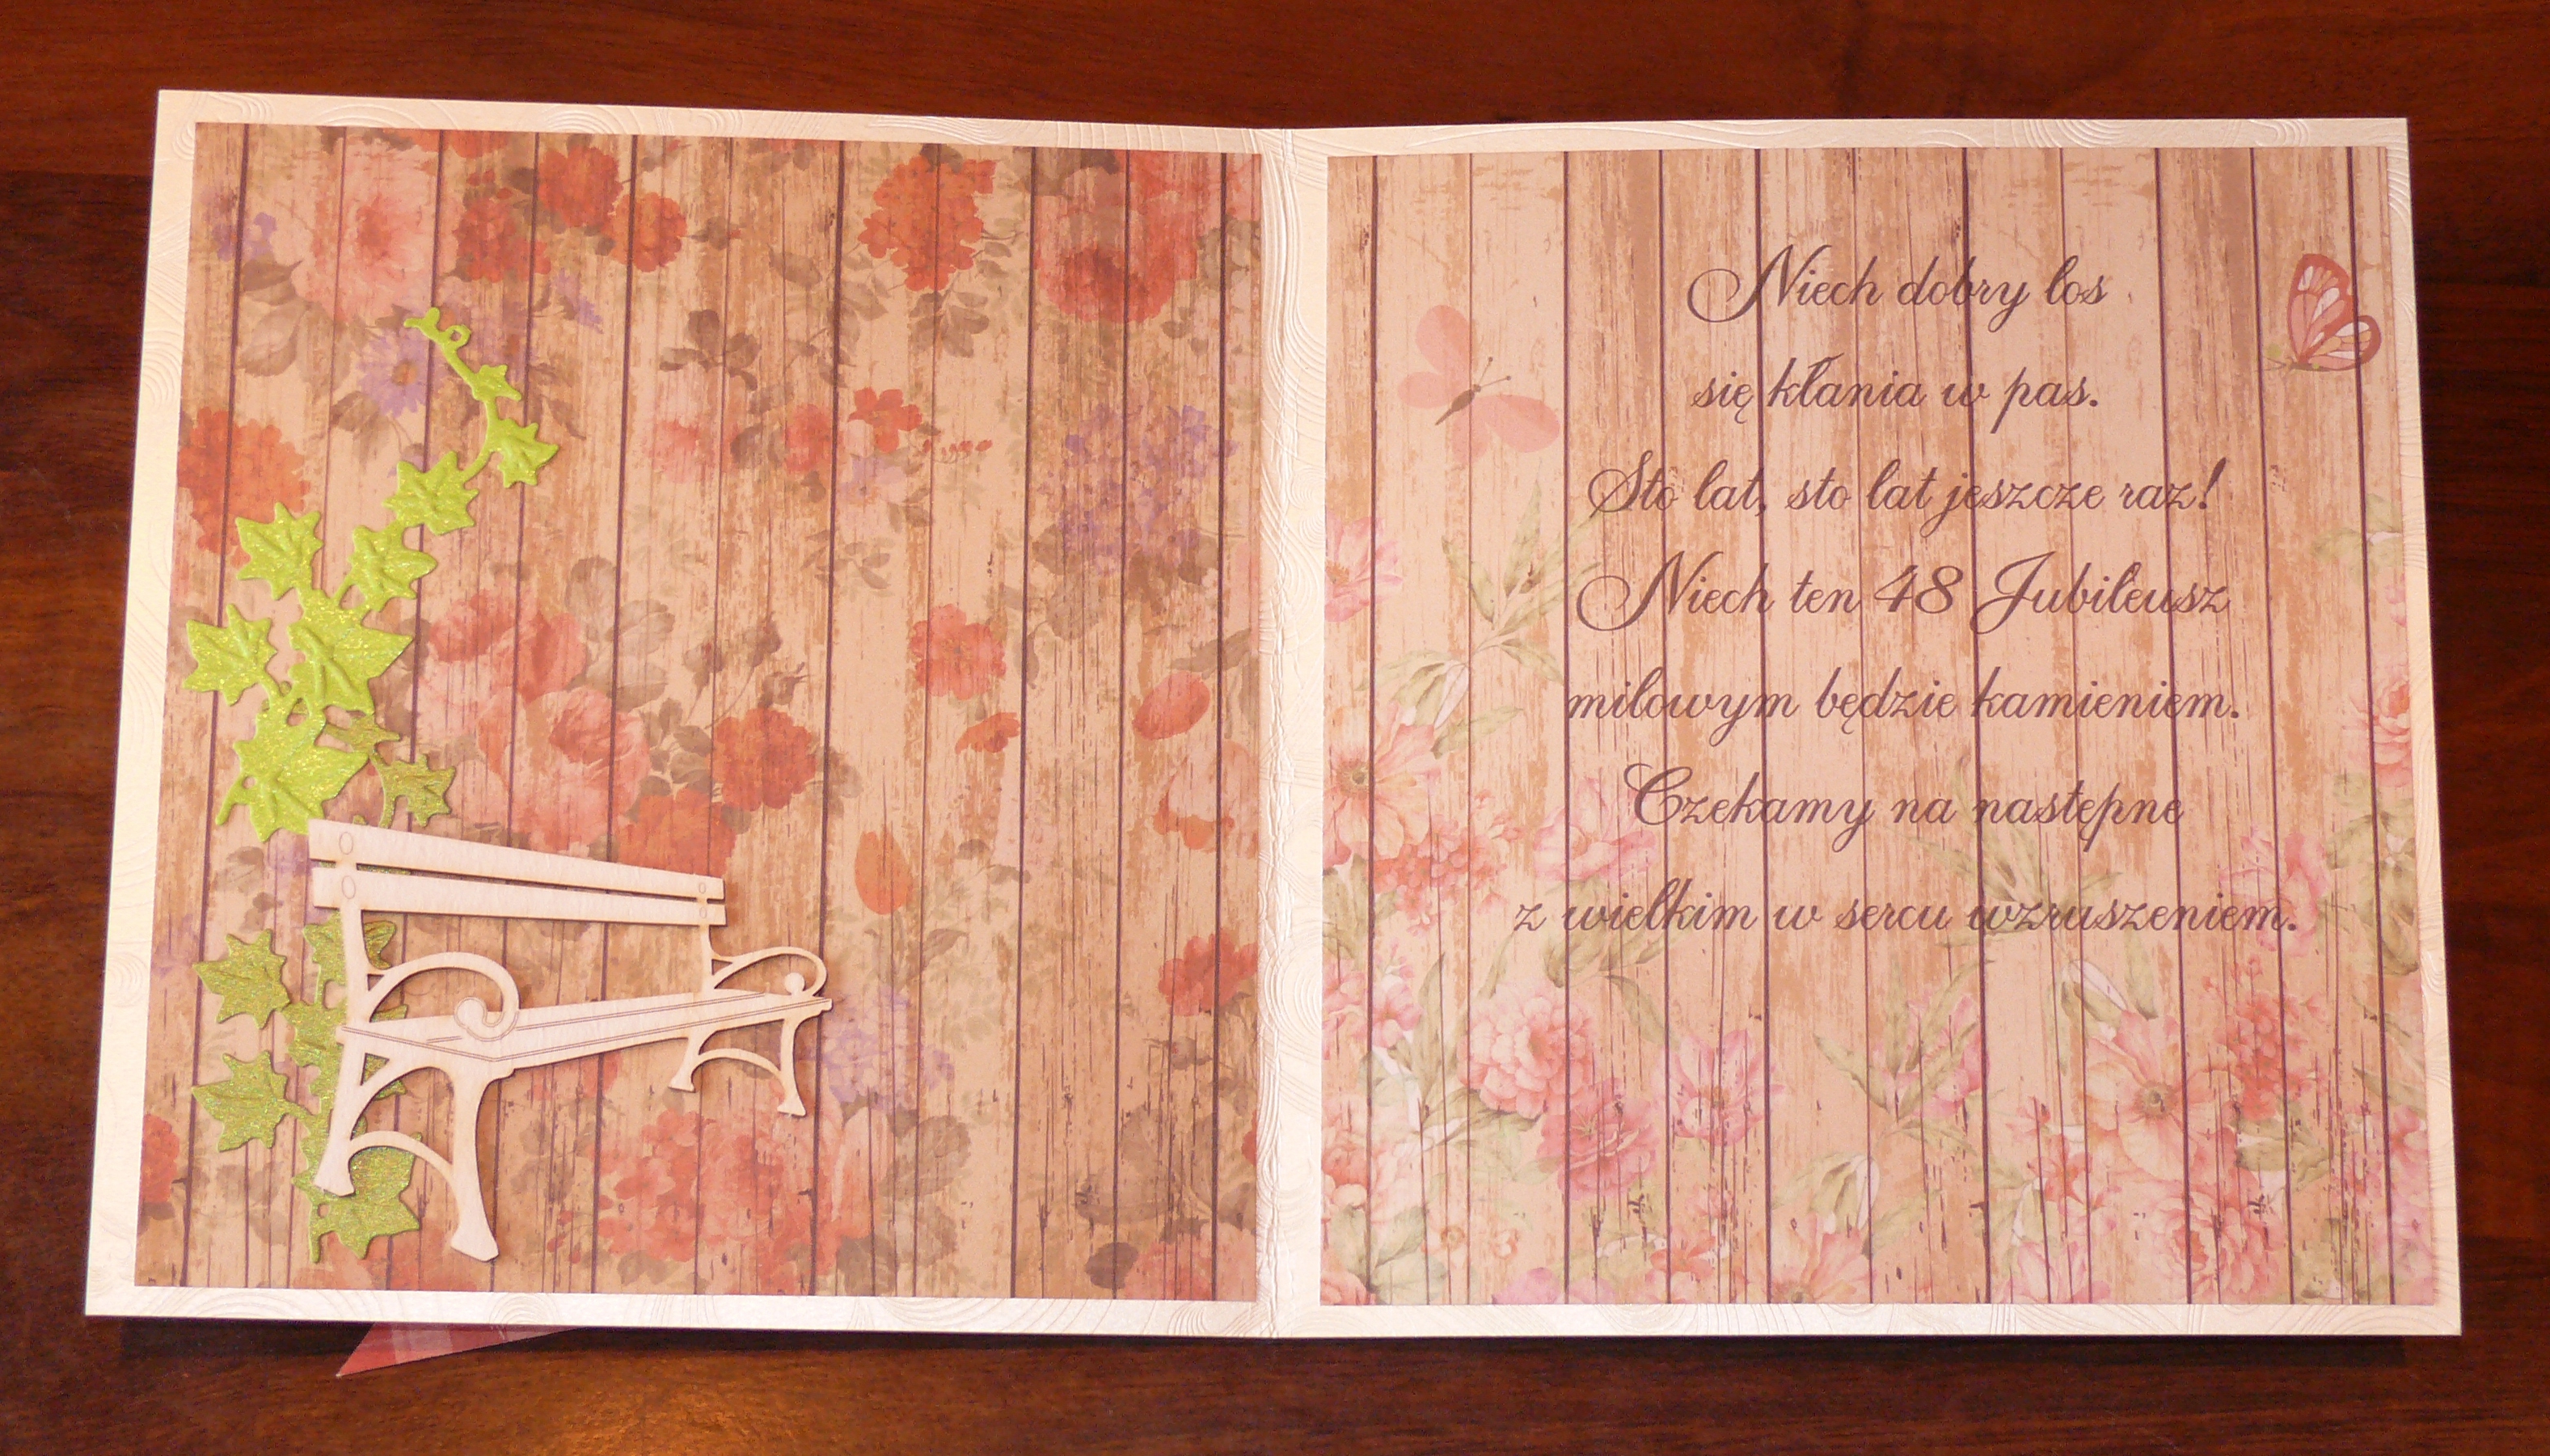 Niech dobry los
się kłania w pas.
Sto lat, sto lat jeszcze raz!
Niech ten 48 Jubileusz
milowym będzie kamieniem.
Czekamy na następne
z wielkim w sercu wzruszeniem.